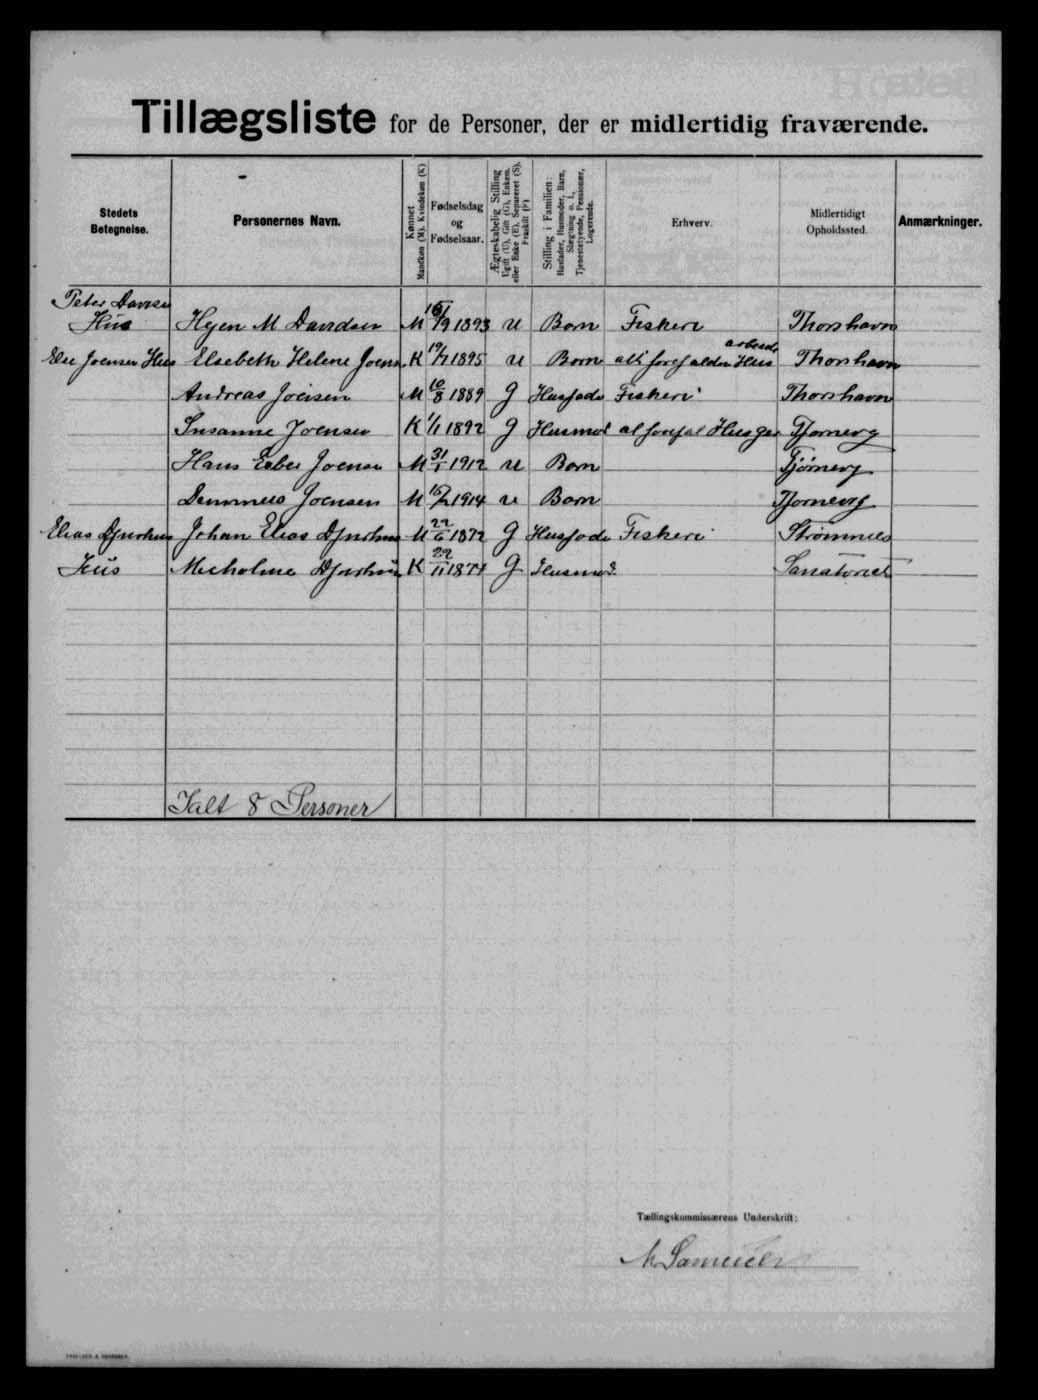 Tillægsliste for de Personer, der er midlertidig fraværende.
Stedets Betegnelse. Personernes Navn. Kønnet Mandkøn (M). Kvindekøn (K) Fødselsdag og Fødselsaar. Ægteskabelig Stilling Ugift (U), Gift (G), Enkem. eller Enke (E), Separeret (S), Fraskilt (F) Stilling i Familien: Husfader, Husmoder, Barn, Slægtning o. l., Tjenestetyende, Pensionær, Logerende. Erhverv. Midlertidigt Opholdssted. Anmærkninger.
Peter
Hus M Davidsen M 1893 U Barn Fiskeri Thorshavn
Joensen Hus Elsebeth Helene Joens K 19/7 1895 U Barn alt forefalden Hus arbeide Thorshavn
Andreas Joensen M 10/8 1889 G Husfade Fiskeri Thorshavn
Susanne Joensen K 1/1 1892 G Husmod Tjørnevig
Hans Joensen M 31/1 1912 U Barn Tjørnevig
Joensen M 1914 U Barn Tjørnevig
Elias Djurhus Johan Elias Djurhus M 22/6 1872 G Husfade Fiskeri Strømnes
Hus Djurhus K 22/11 1874 G Husmod. Sanatoriet
Ialt 8 Personer
Tællingskommissærens Underskrift: